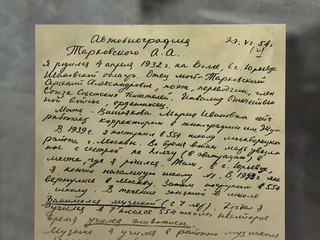 Автобиография
Тарковского А. А.
Я родился 4 апреля 1932 г. на Волге, в г. Юрьевце
Ивановской области. Отец мой - Тарковский
Арсений Александрович, поэт, переводчик, член
Союза Советских Писателей. Инвалид Отечествен
ной Войны, орденоносец.
Мать Вишнякова Мария Ивановна сейчас
работает корректором в типографии им.
В 1939 г. я поступил в 554 школу
района г. Москвы. Во время войны мать увезла
меня с сестрой на Волгу (в эвакуацию) в
места, где я родился. Там, в г. Юрьевце
я кончил начальную школу №1. В 1943 г. мы
вернулись в Москву. Затем поступил в 554
школу. В течение занятий в школе
занимался музыкой (с 7 лет). Когда я
учился в 7 классе 554 школы некоторое
время учился живописи.
Музыке я учился в районной муз. школе